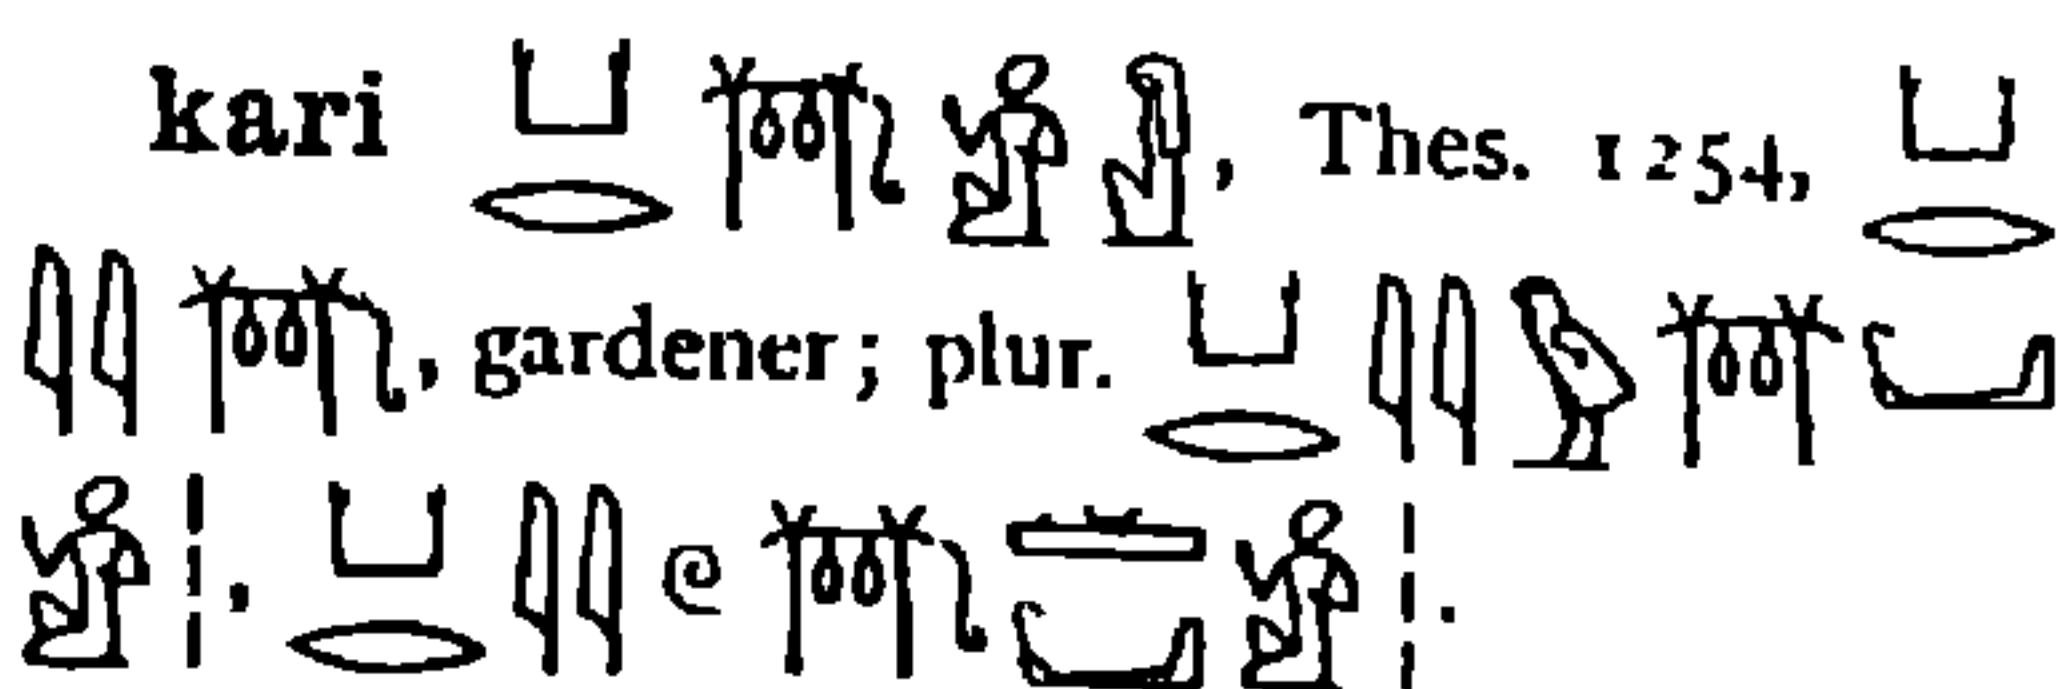 kari 𓂓𓂋𓇭𓀀𓀭, Thes. 1254, 𓂓𓂋
𓇋𓇋𓇭, gardener; plur. 𓂓𓂋𓇋𓇋𓅱𓇭
𓀀𓏫, 𓂓𓂋𓇋𓇋𓏲𓇭𓀀𓏫.